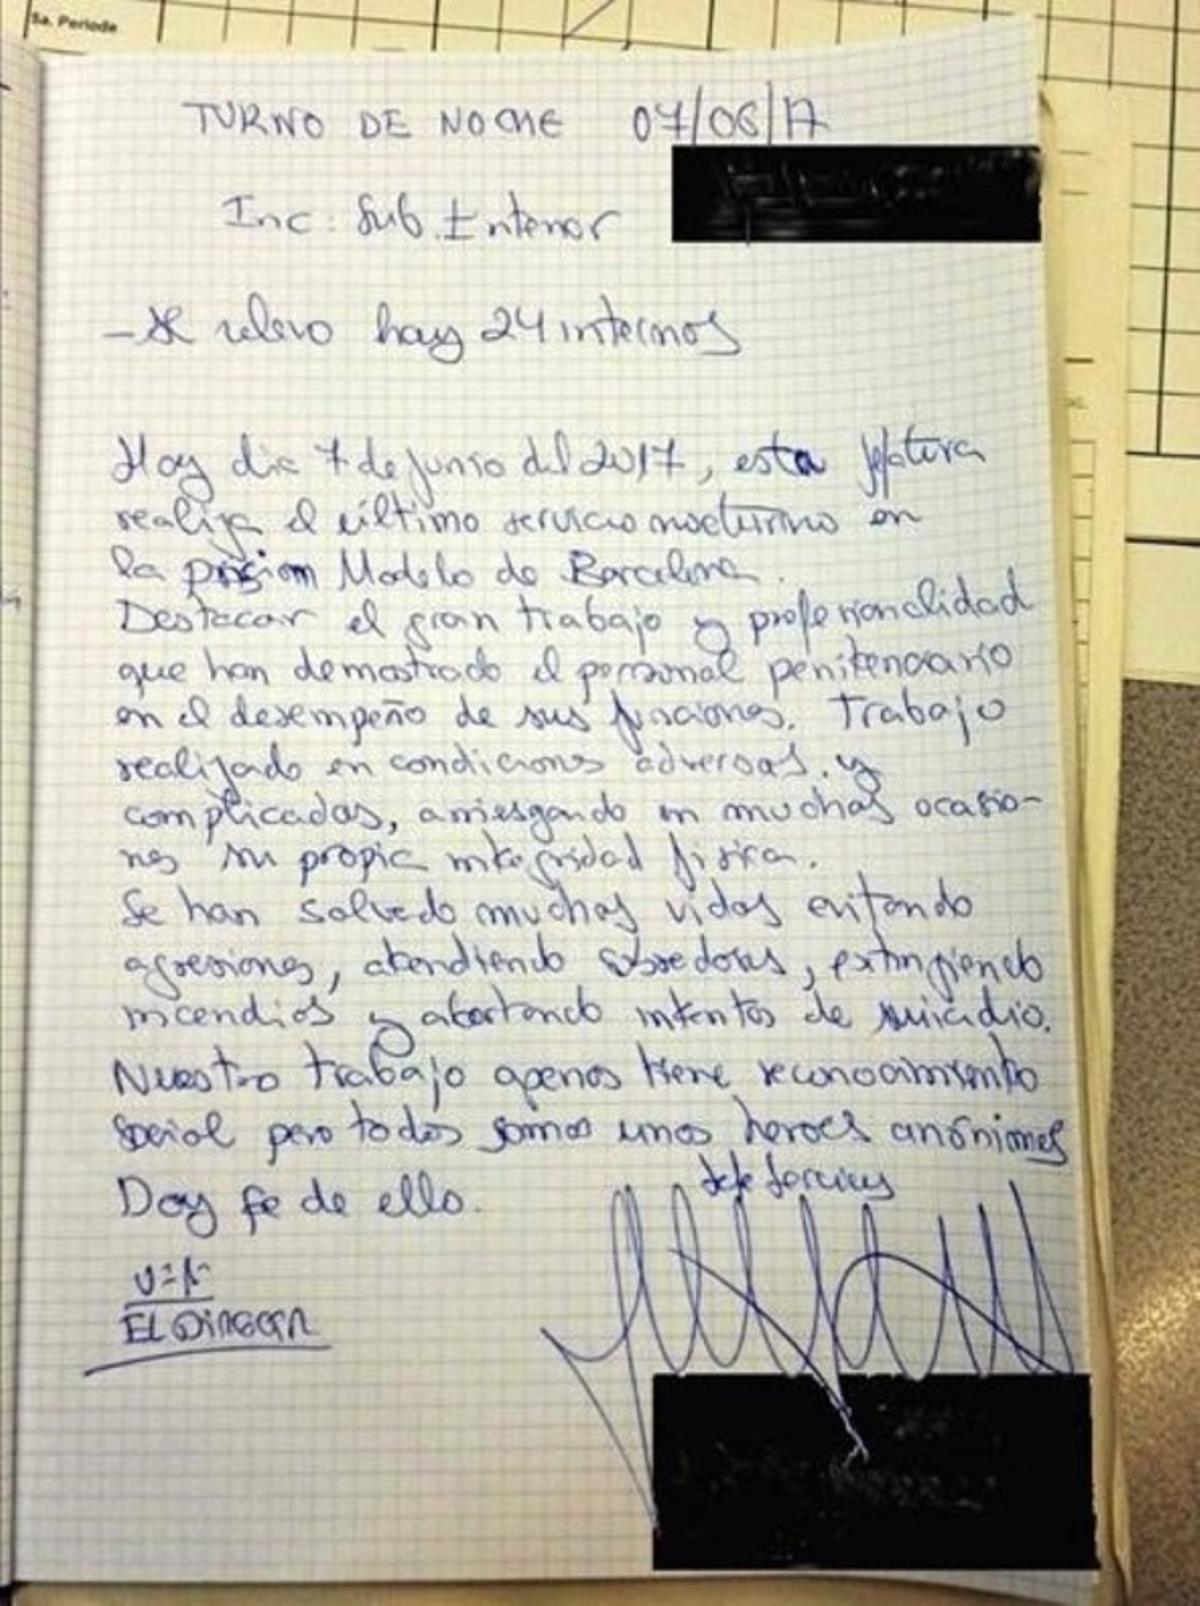 5a. Periode
TURNO DE NOCHE 07/06/17
Inc: Sub. Interior
- Al relevo hay 24 internos
Hoy dia 7 de junio del 2017, esta jefatura
realiza el último servicio nocturno en
la prision Modelo de Barcelona.
Destacar el gran trabajo y profesionalidad
que han demostrado el personal penitenciario
en el desempeño de sus funciones. Trabajo
realizado en condiciones adversas. y
complicadas, arriesgando en muchas ocasio-
nes su propia integridad física.
Se han salvado muchas vidas evitando
agresiones, atendiendo sobredosis, extingiendo
incendios y abortando intentos de suicidio.
Nuestro trabajo apenas tiene reconocimiento
social pero todos somos unos heroes anónimos
Doy fe de ello.
Jefe Servicios
EL DIRECTOR